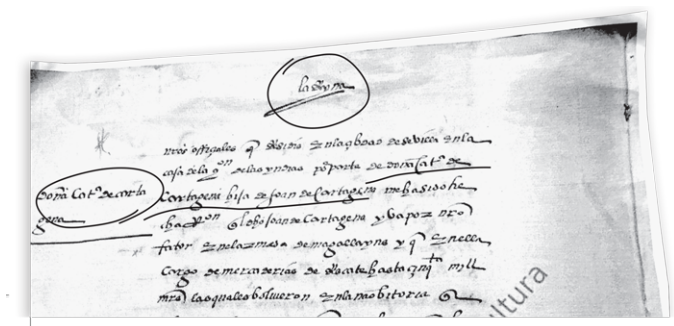 la Reyna
nros offiçiales q Residis en la çibdad de sevilla en la
casa de la qon de las yndias por parte de doña Cata de
doña Cata de carta
gena
Cartagena hija de Joan de Cartagena me ha sido he
cha Ron q el dho Joan de Cartagena yva por nro
fator en el armada de magallayns y q en ella
cargo de mercaderias de Rescate hasta çinqta mill
mrs las quales bolvieron en la nao bitoria q
ultura